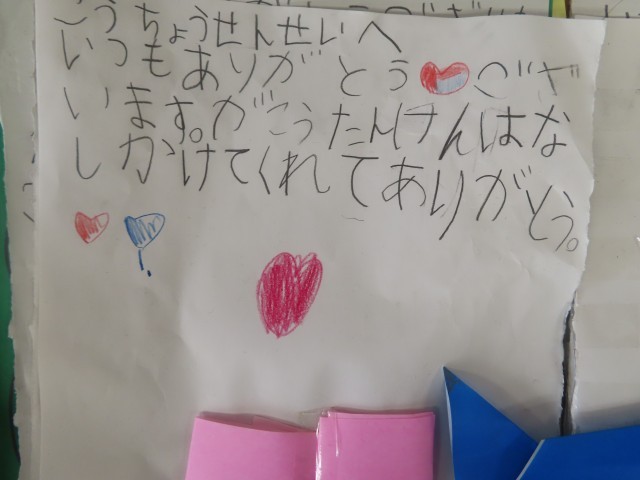 こうちょうせんせいへ
いつもありがとうござ
います。がこうたんけんはな
しかけてくれてありがとう。